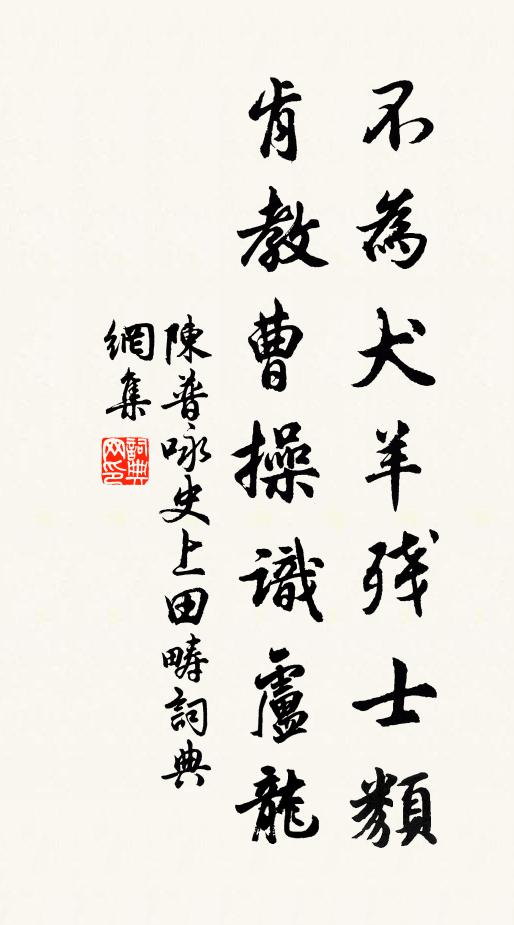 不為犬羊殘士類
肯教曹操識盧龍
陳普咏史上田疇詞典
網集
詞典
网印